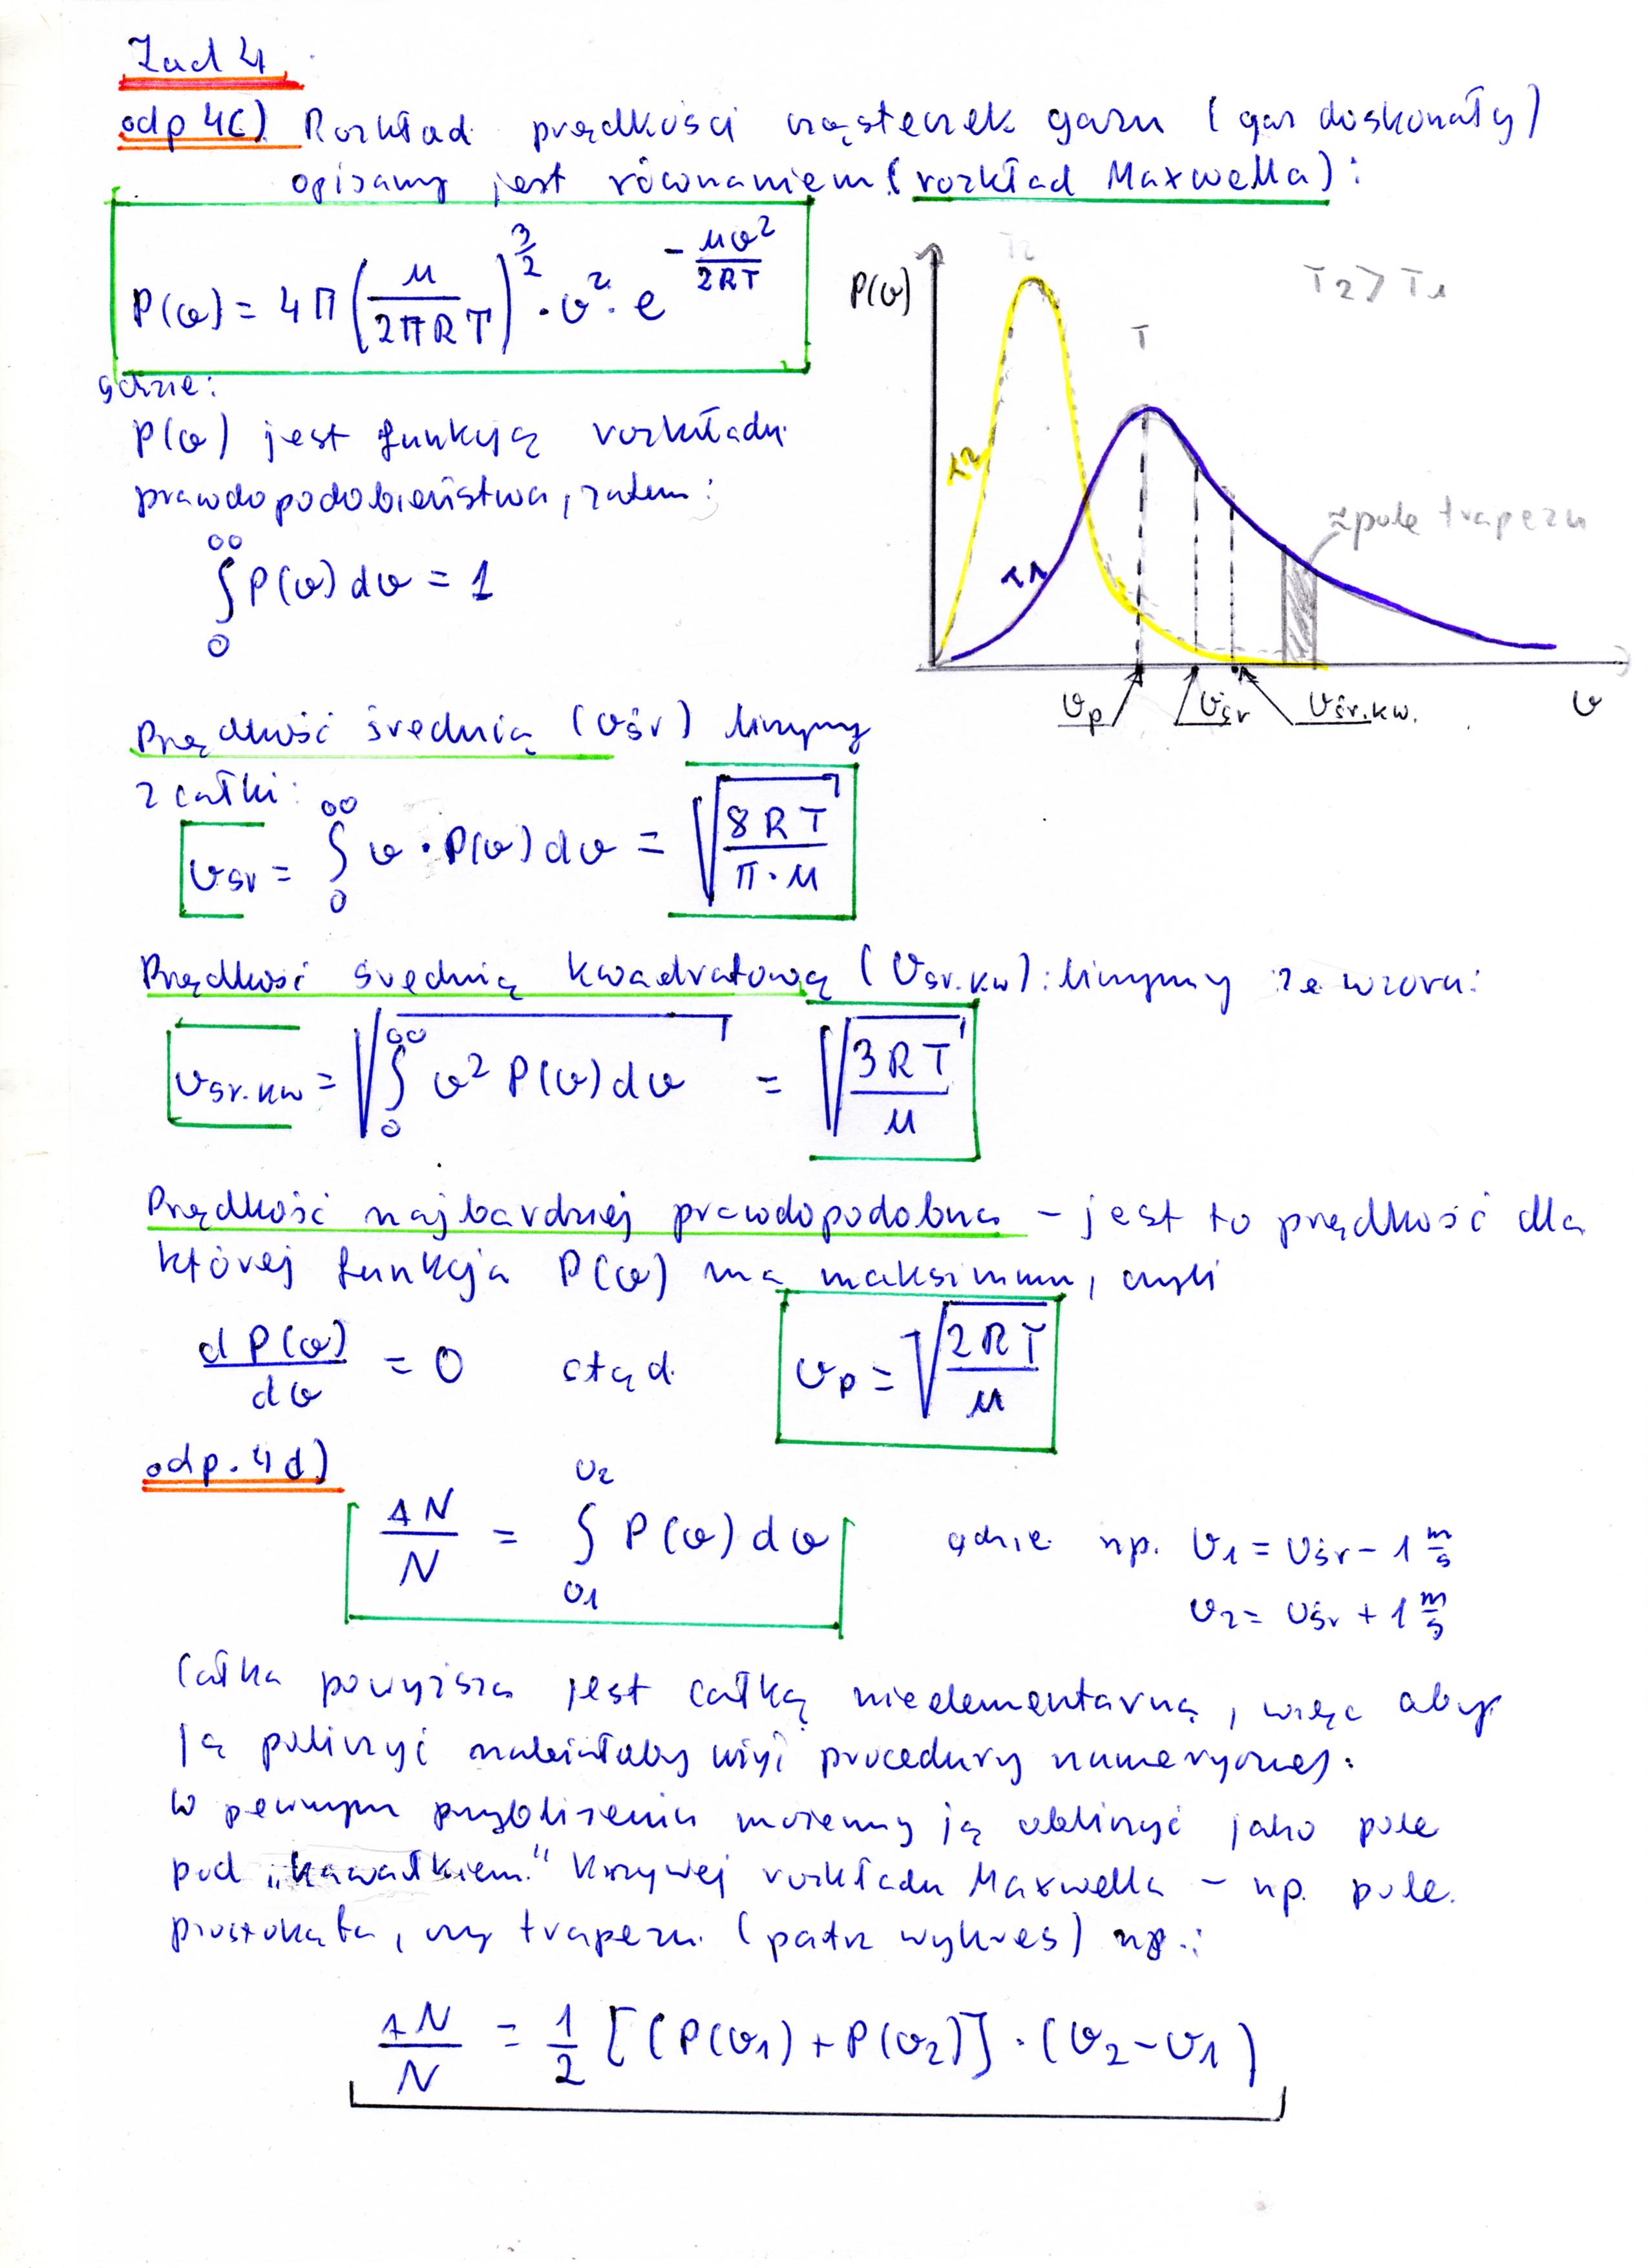 Zad 4
odp 4c) Rozkład prędkości cząsteczek gazu (gaz doskonały)
opisany jest równaniem (rozkład Maxwella):
P(v) = 4π (μ / 2πRT)^(3/2) · v² · e^(-μv² / 2RT)
gdzie:
P(v) jest funkcją rozkładu
prawdopodobieństwa, zatem:
∫₀^∞ P(v) dv = 1
P(v)
T2
T
T2 > T1
T2
T1
≈ pole trapezu
vp
vśr
vśr.kw.
v
Prędkość średnią (vśr) liczymy
z całki:
vśr = ∫₀^∞ v · P(v) dv = √(8RT / π·μ)
Prędkość średnią kwadratową (vśr.kw): liczymy ze wzoru:
vśr.kw = √(∫₀^∞ v² P(v) dv) = √(3RT / μ)
Prędkość najbardziej prawdopodobna – jest to prędkość dla
której funkcja P(v) ma maksimum, czyli
dP(v)/dv = 0 stąd vp = √(2RT / μ)
odp. 4d)
ΔN/N = ∫_v1^v2 P(v) dv gdzie np. v1 = vśr − 1 m/s
v2 = vśr + 1 m/s
Całka powyższa jest całką nieelementarną, więc aby
ją policzyć należałoby użyć procedury numerycznej.
W pewnym przybliżeniu możemy ją obliczyć jako pole
pod „kawałkiem" krzywej rozkładu Maxwella – np. pole
prostokąta, czy trapezu (patrz wykres) np.:
ΔN/N = 1/2 [(P(v1) + P(v2)] · (v2 − v1)